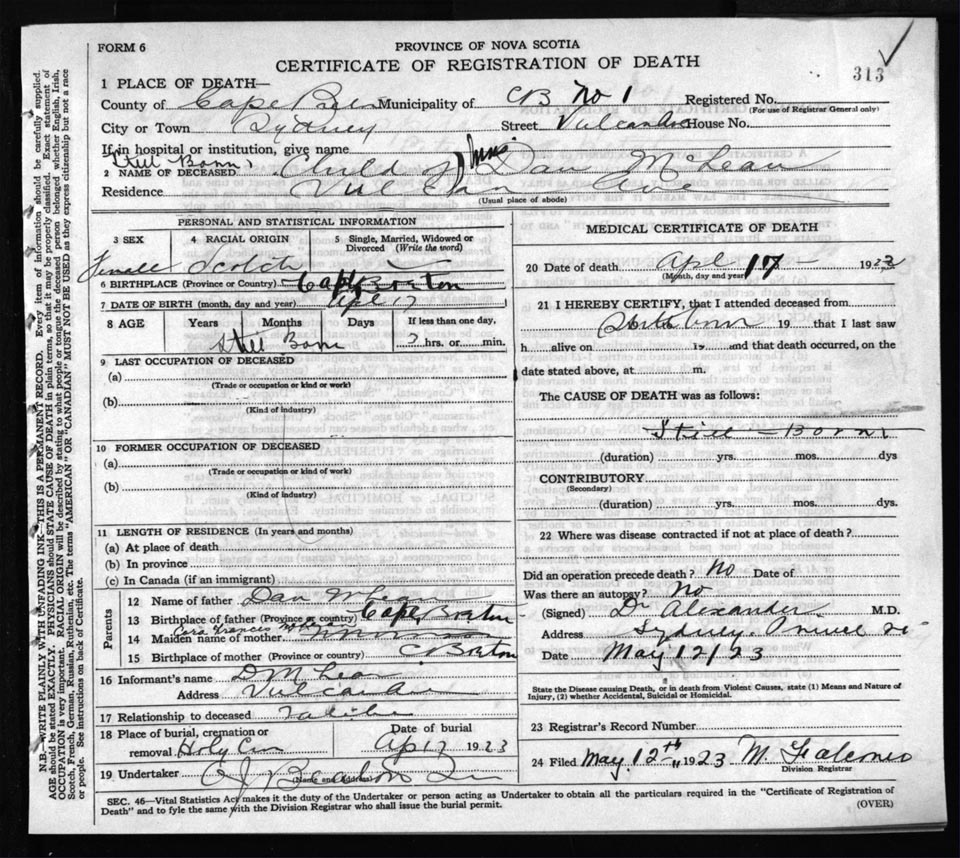 FORM 6
PROVINCE OF NOVA SCOTIA
CERTIFICATE OF REGISTRATION OF DEATH
313
1 PLACE OF DEATH—
County of Cape Municipality of CB No 1 Registered No.
(For use of Registrar General only)
City or Town Sydney Street Vulcan Ave House No.
If in hospital or institution, give name
Still Born
2 NAME OF DECEASED Child of Dan McLean
Residence Vulcan Ave
(Usual place of abode)
PERSONAL AND STATISTICAL INFORMATION
3 SEX 4 RACIAL ORIGIN 5 Single, Married, Widowed or Divorced (Write the word)
Female Scotch
6 BIRTHPLACE (Province or Country) Cape Breton
7 DATE OF BIRTH (month, day and year) Apl 17
8 AGE Years Months Days If less than one day,
Still Born hrs. or min.
9 LAST OCCUPATION OF DECEASED
(a)
(Trade or occupation or kind or work)
(b)
(Kind of industry)
10 FORMER OCCUPATION OF DECEASED
(a)
(Trade or occupation or kind of work)
(b)
(Kind of industry)
11 LENGTH OF RESIDENCE (In years and months)
(a) At place of death
(b) In province
(c) In Canada (if an immigrant)
Parents
12 Name of father Dan McLean
13 Birthplace of father (Province or country) Cape Breton
14 Maiden name of mother Frances
15 Birthplace of mother (Province or country) C Breton
16 Informant's name D McLean
Address Vulcan Ave
17 Relationship to deceased Father
18 Place of burial, cremation or removal Holy Date of burial Ap 17 1923
19 Undertaker
(Name and Address)
MEDICAL CERTIFICATE OF DEATH
20 Date of death Apl 17 1923
(Month, day and year)
21 I HEREBY CERTIFY, that I attended deceased from
19 that I last saw
h alive on 19 and that death occurred, on the
date stated above, at m.
The CAUSE OF DEATH was as follows:
Still-Born
(duration) yrs. mos. dys
CONTRIBUTORY
(Secondary)
(duration) yrs. mos. dys.
22 Where was disease contracted if not at place of death?
Did an operation precede death? No Date of
Was there an autopsy? No
(Signed) Dr Alexander M.D.
Address Sydney.
Date May 12/23
State the Disease causing Death, or in death from Violent Causes, state (1) Means and Nature of Injury, (2) whether Accidental, Suicidal or Homicidal.
23 Registrar's Record Number
24 Filed May 12th 1923 M. Falconer
Division Registrar
SEC. 46—Vital Statistics Act makes it the duty of the Undertaker or person acting as Undertaker to obtain all the particulars required in the "Certificate of Registration of
Death" and to fyle the same with the Division Registrar who shall issue the burial permit. (OVER)
N.B.—WRITE PLAINLY WITH UNFADING INK—THIS IS A PERMANENT RECORD. Every item of information should be carefully supplied.
AGE should be stated EXACTLY. PHYSICIANS should STATE CAUSE OF DEATH in plain terms, so that it may be properly classified. Exact statement of
OCCUPATION is very important. RACIAL ORIGIN will be described by stating to what people or tongue the deceased person belonged whether English, Irish,
Scotch, French, German, Russian, Ruthenian, etc. The terms "AMERICAN" OR "CANADIAN" MUST NOT BE USED as they express citizenship but not a race
or people. See instructions on back of Certificate.